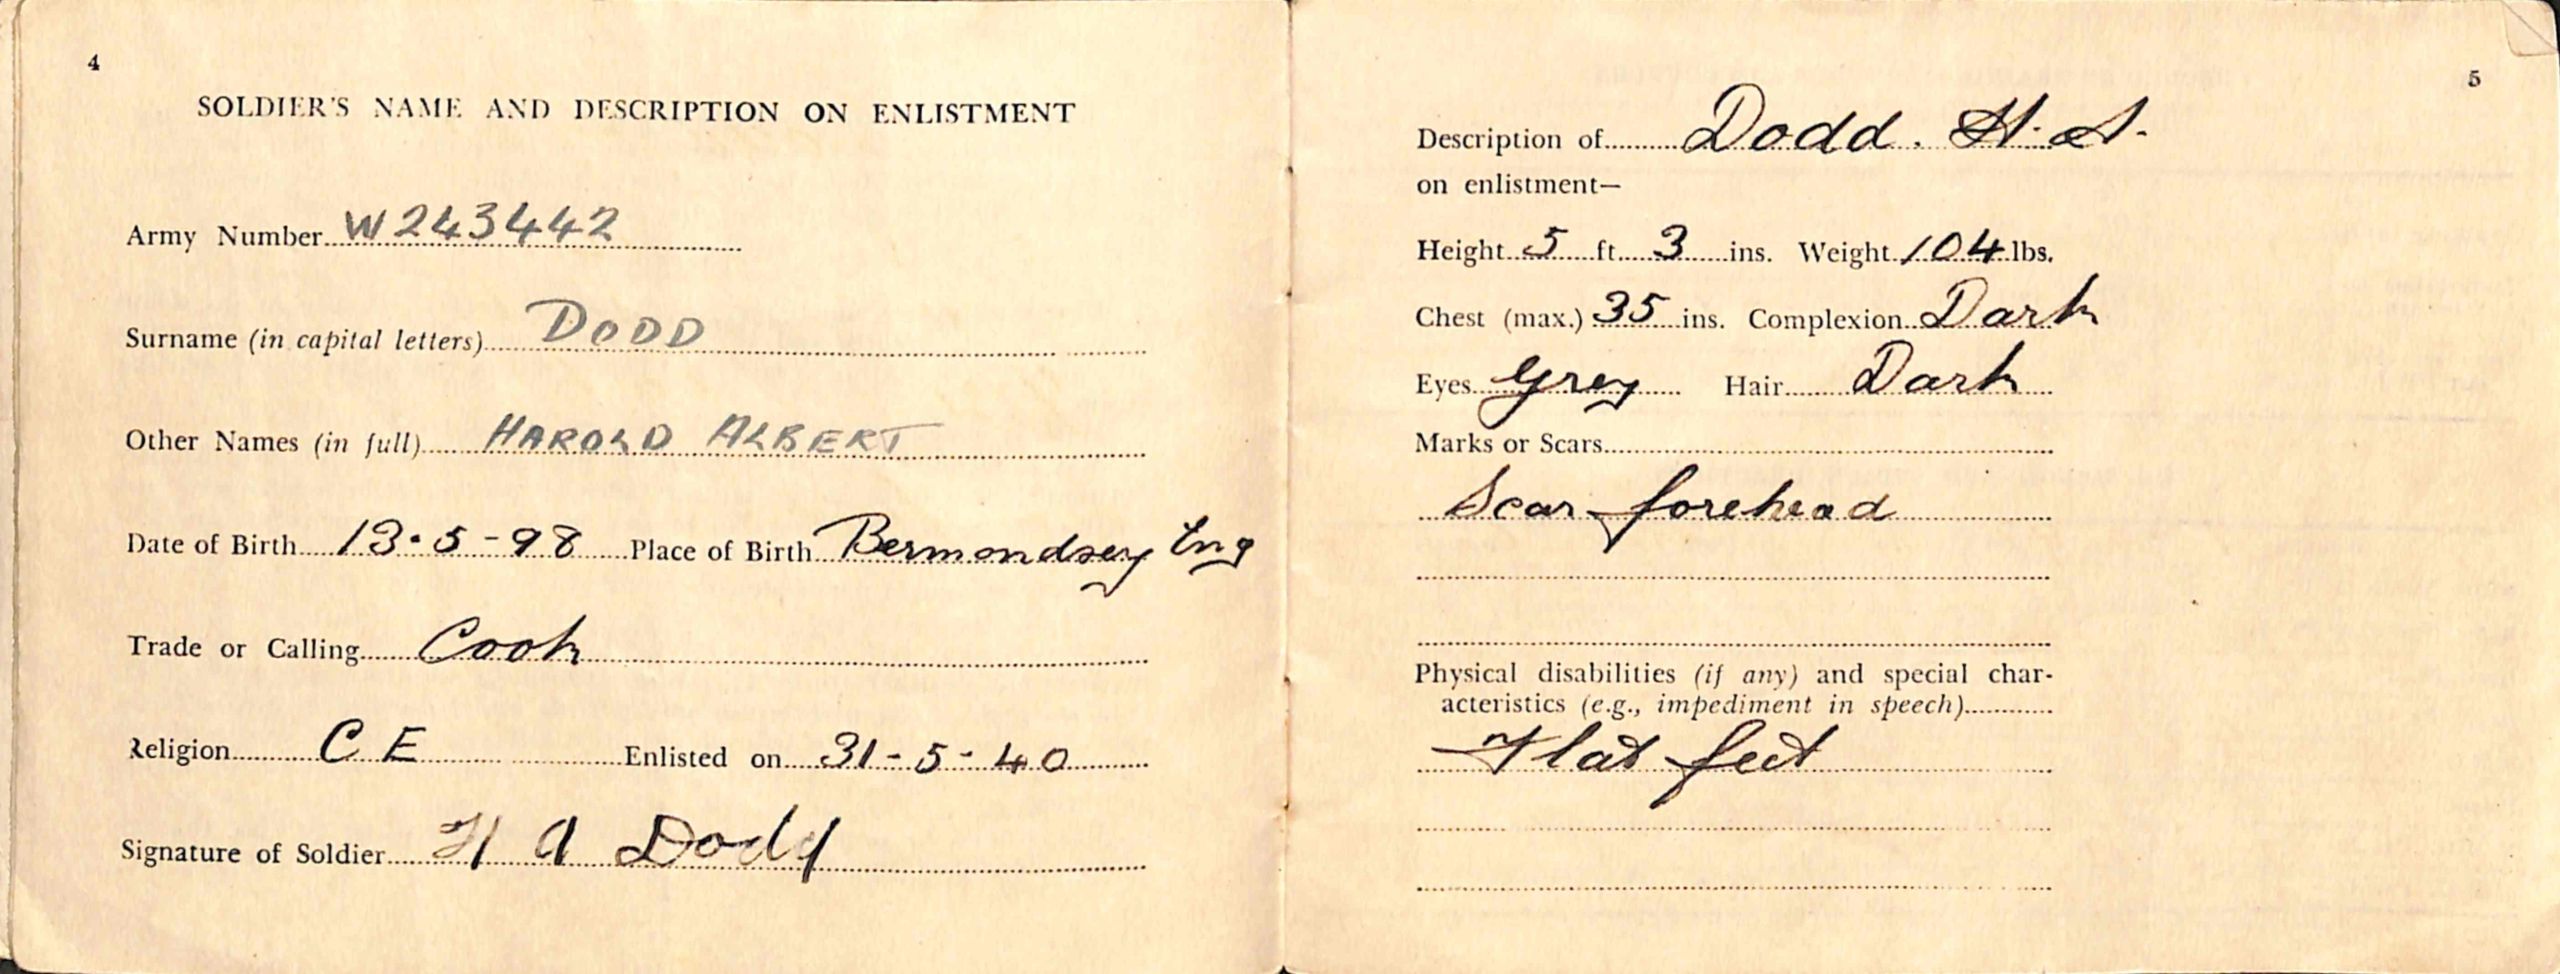 4
SOLDIER'S NAME AND DESCRIPTION ON ENLISTMENT
Army Number W243442
Surname (in capital letters) DODD
Other Names (in full) HAROLD ALBERT
Date of Birth 13.5-98 Place of Birth Bermondsey Eng
Trade or Calling Cook
Religion C E Enlisted on 31-5-40
Signature of Soldier H A Dodd
5
Description of Dodd. H. A.
on enlistment—
Height 5 ft 3 ins. Weight 104 lbs.
Chest (max.) 35 ins. Complexion Dark
Eyes Grey Hair Dark
Marks or Scars
Scar forehead
Physical disabilities (if any) and special char-
acteristics (e.g., impediment in speech)
Flat feet